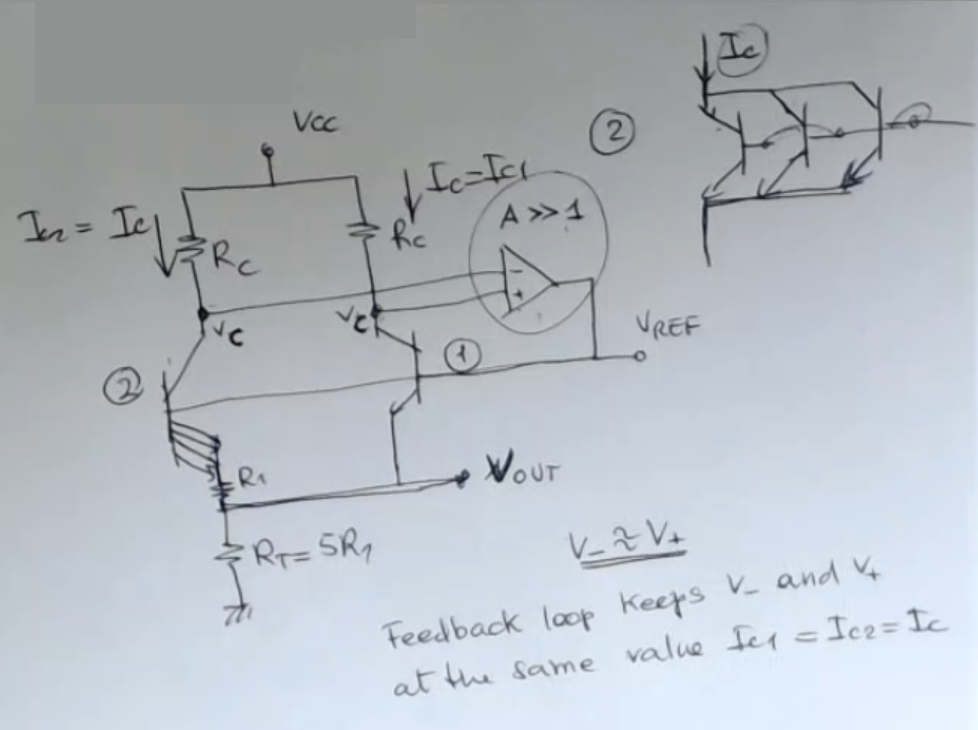 VCC
② Ic
Ic2 = Ic
Ic = Ic1
Rc
Rc
A >> 1
-
+
Vc
Vc
VREF
①
②
R1
VOUT
RT = 5R1
V_ ≈ V+
Feedback loop keeps V_ and V+
at the same value Ic1 = Ic2 = Ic